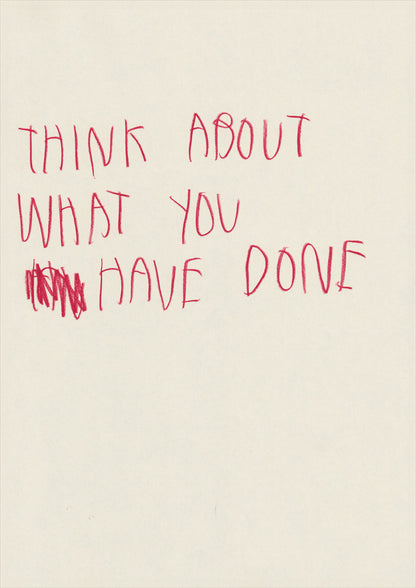 THINK ABOUT
WHAT YOU
HAVE DONE